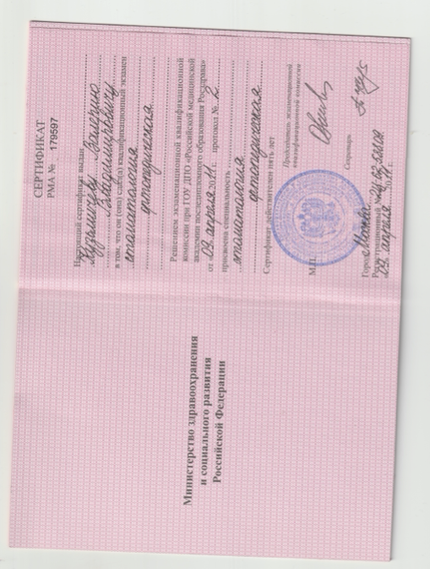 Министерство здравоохранения
и социального развития
Российской Федерации
СЕРТИФИКАТ
РМА № 179597
Настоящий сертификат выдан
Кузьмичеву Валерию
Владимировичу
в том, что он (она) сдал(а) квалификационный экзамен
стоматология
ортопедическая
Решением экзаменационной квалификационной
комиссии при ГОУ ДПО «Российской медицинской
академии последипломного образования Росздрава»
от 09. апреля 2011 г. протокол № 2
присвоена специальность
стоматология
ортопедическая
Сертификат действителен пять лет
Председатель экзаменационной
квалификационной комиссии
Секретарь
М.П.
Город Москва
09. апреля 2011 г.